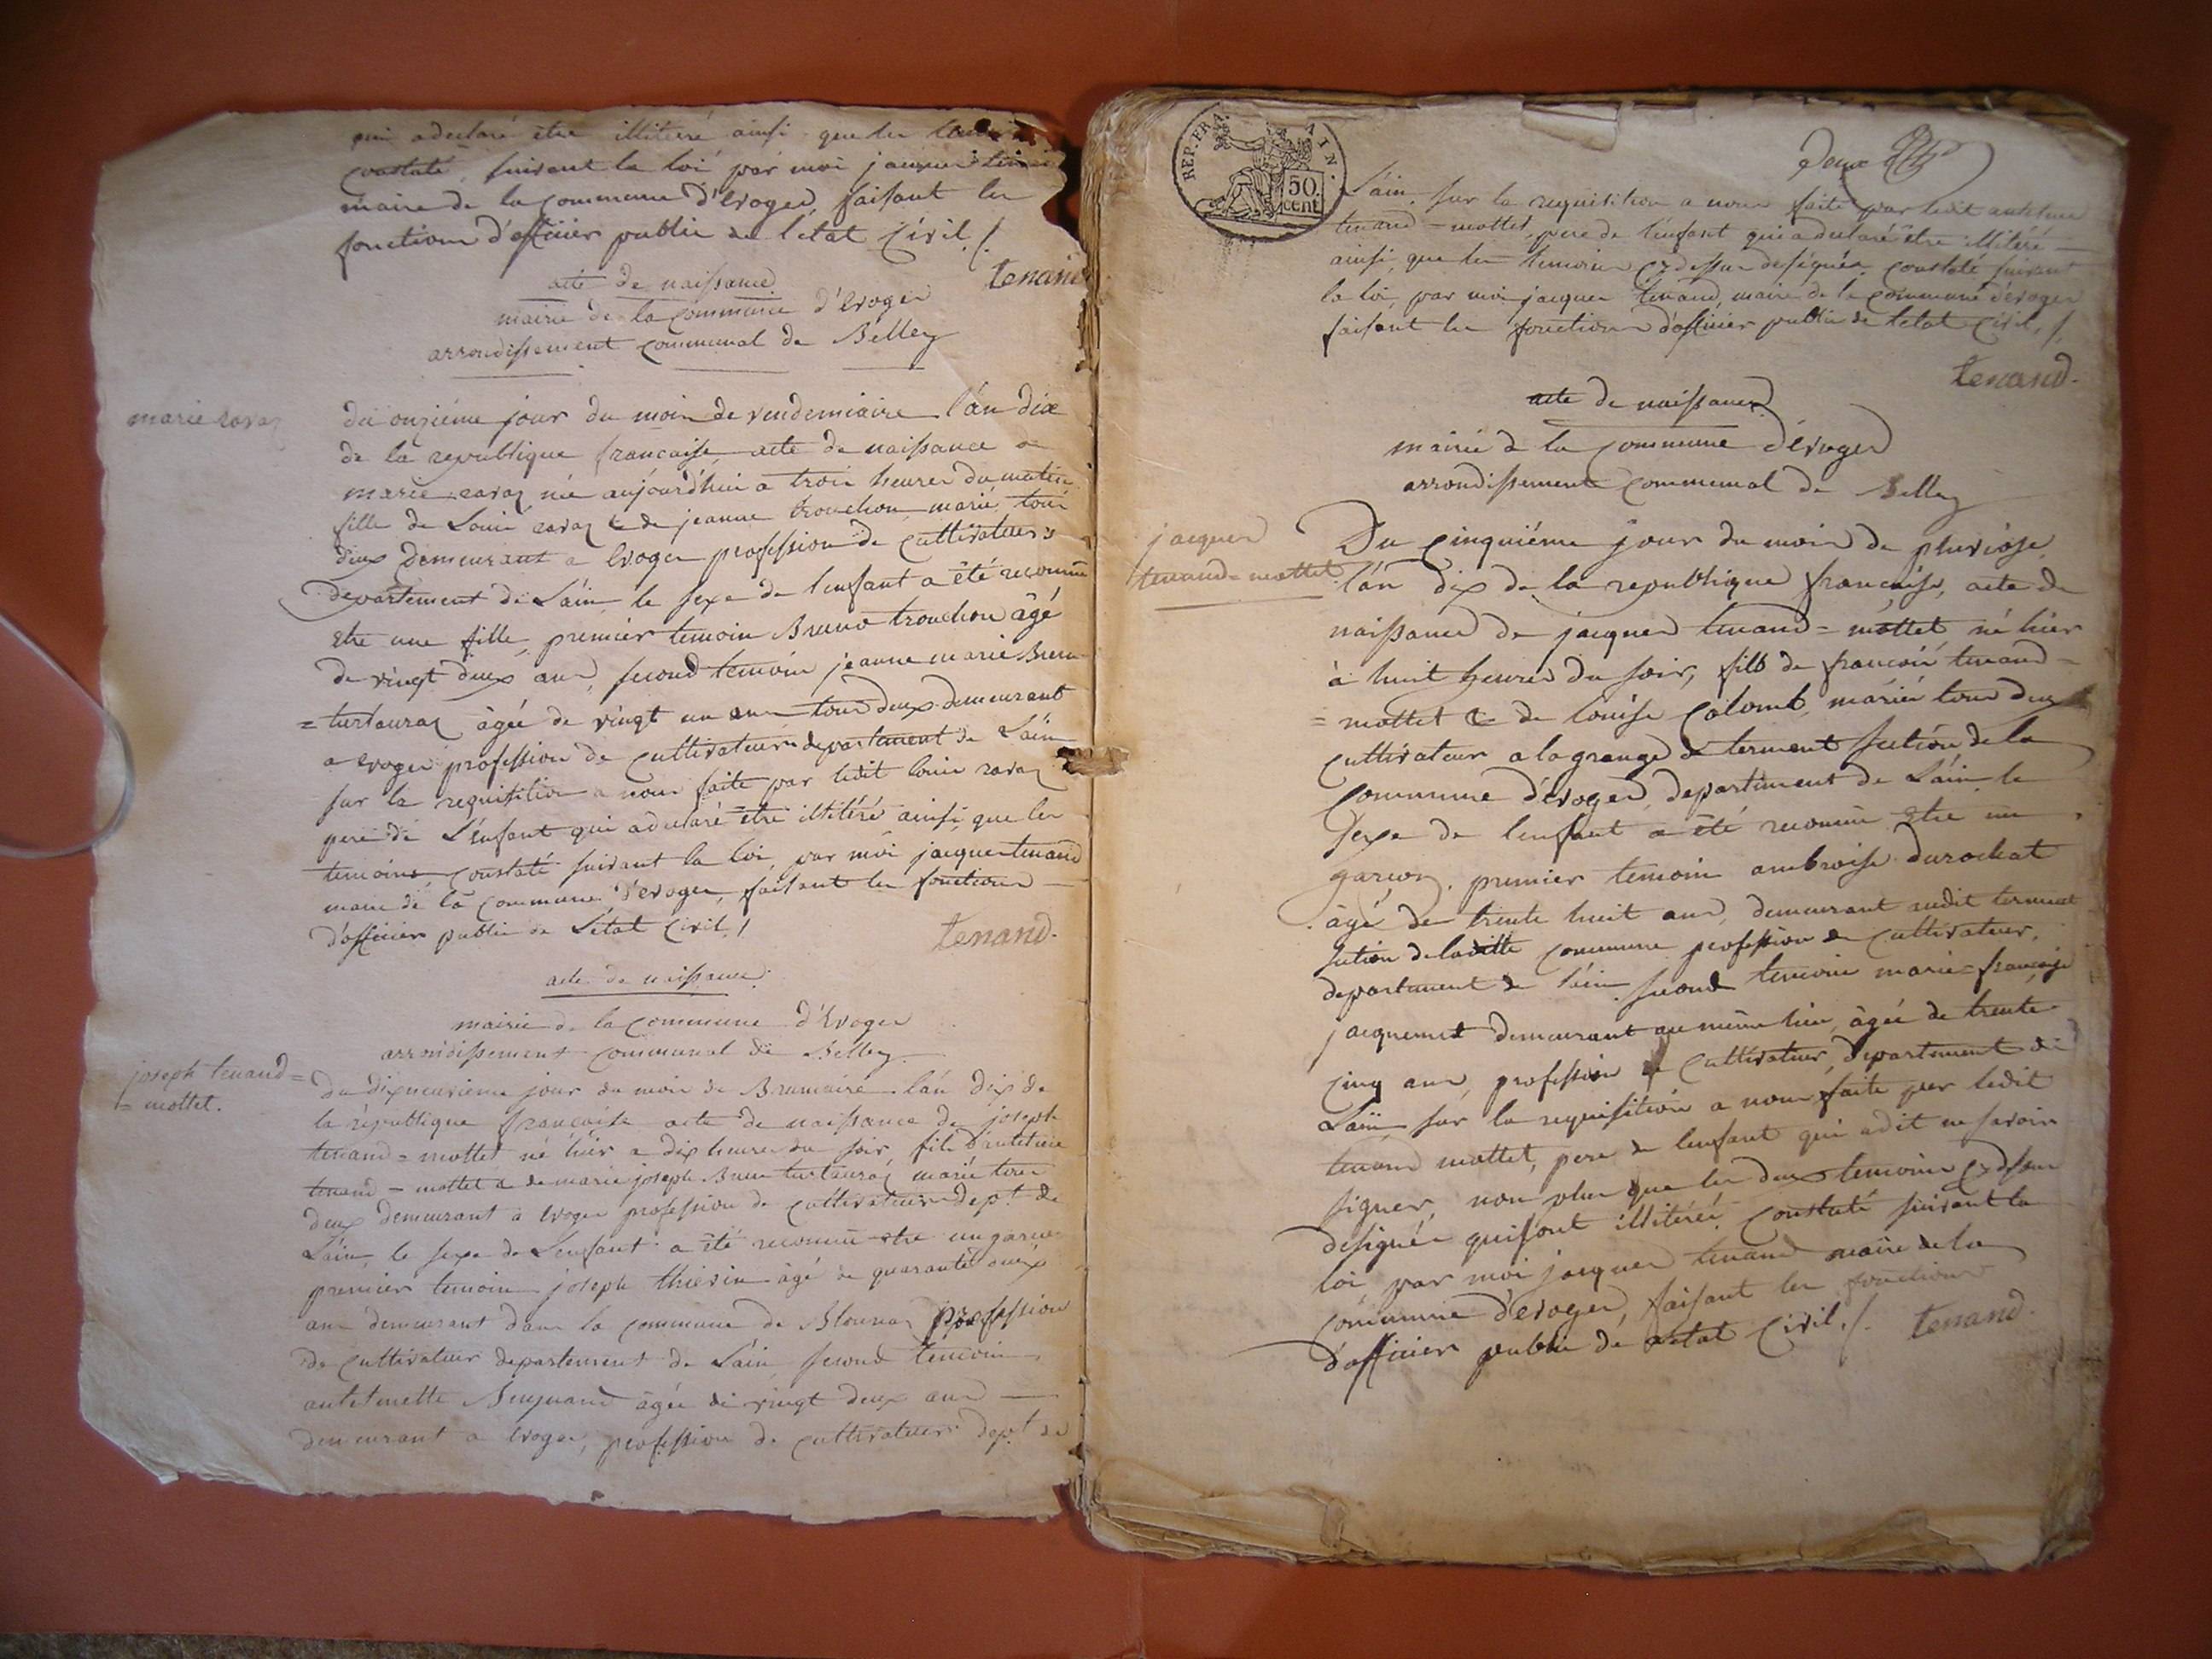 qui a declaré être illiteré ainsi que les
constaté, suivant la loi par moi jacques
maire de la commune d'Evoges, faisant les
fonctions d'officier public de l'état Civil ./.
tenand
acte de naissance
mairie de la commune d'Evoges
arrondissement communal de Belley
marie ravaz
du onziéme jour du mois de vendemiaire l'án dix
de la republique francaise, acte de naissance de
marie ravaz née aujourd'hui a trois heures du matin
fille de Louis ravaz & de jeanne trouchon, mariés, tous
deux demeurant a Evoges profession de cultivateurs
departement de L'ain, le sexe de l'enfant a été reconnu
etre une fille, premier temoin Bruno trouchon âgé
de vingt deux ans, second temoin jeanne marie
âgée de vingt un ans tous deux demeurant
a evoges profession de cultivateurs departement de L'ain
sur la requisition a nous faite par ledit louis ravaz
pere de L'enfant qui a declaré être illitéré ainsi que les
temoins, constaté suivant la loi, par moi jacques tenand
maire de la commune d'Evoges, faisant les fonctions
d'officier public de L'état Civil ./
tenand.
acte de naissance.
mairie de la commune d'Evoges
arrondissement communal de Belley.
joseph tenand=
=mottet.
du dixneuvieme jour du mois de Brumaire l'án dix de
la république francaise acte de naissance de joseph
tenand=mottet né hier a dix heures du soir, fils d'antelme
tenand-mottet & de marie joseph mariés tous
deux demeurant a Evoges profession de cultivateurs dept. de
L'ain, le sexe de L'enfant a été reconnu etre un garcon
premier temoin joseph thievin âgé de quarante deux
ans demeurant dans la commune de profession
de cultivateur departement de L'ain, second temoin
antelmette âgée de vingt deux ans —
demeurant a Evoges, profession de cultivateur dept. de
REP. FRA. 50. cent
deux
L'áin, sur la requisition a nous faite par ledit antelme
tenand-mottet, pere de l'enfant qui a declaré être illitéré —
ainsi, que les temoins cydessus designés. constaté suivant
la loi, par moi jacques tenand, maire de la commune d'evoges
faisant les fonctions d'officier public de l'etat civil ./.
tenand.
acte de naissance
mairie de la commune d'évoges
arrondissement communal de Belley
jacques
tenand=mottet
Du cinquiéme jour du mois de pluviose
l'án dix de la republique francaise, acte de
naissance de jacques tenand=mottet né hier
à huit heures du soir, fils de francois tenand=
=mottet & de louise Colomb, mariés tous deux
cultivateurs a la grange de terment section de la
commune d'évoges, departement de L'áin, le
sexe de l'enfant a été reconnu etre un
garcon. premier temoin ambroise durochat
âgé de trente huit ans, demeurant audit terment
section de ladite commune profession de cultivateur,
departement de l'áin. second temoin marie=francoise
jacquemet demeurant au même lieu, âgée de trente
cinq ans, profession de cultivateur, departement de
L'ain sur la requisition a nous faite par ledit
tenand mottet, pere de l'enfant qui a dit ne savoir
signer, non plus que les deux temoins cydessus
designés qui sont illitérés. constaté suivant la
loi, par moi jacques tenand maire de la
commune d'évoges, faisant les fonctions
d'officier public de l'etat civil ./. tenand.